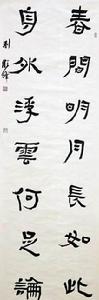 春間明月長如此
身外浮雲何足論
劉